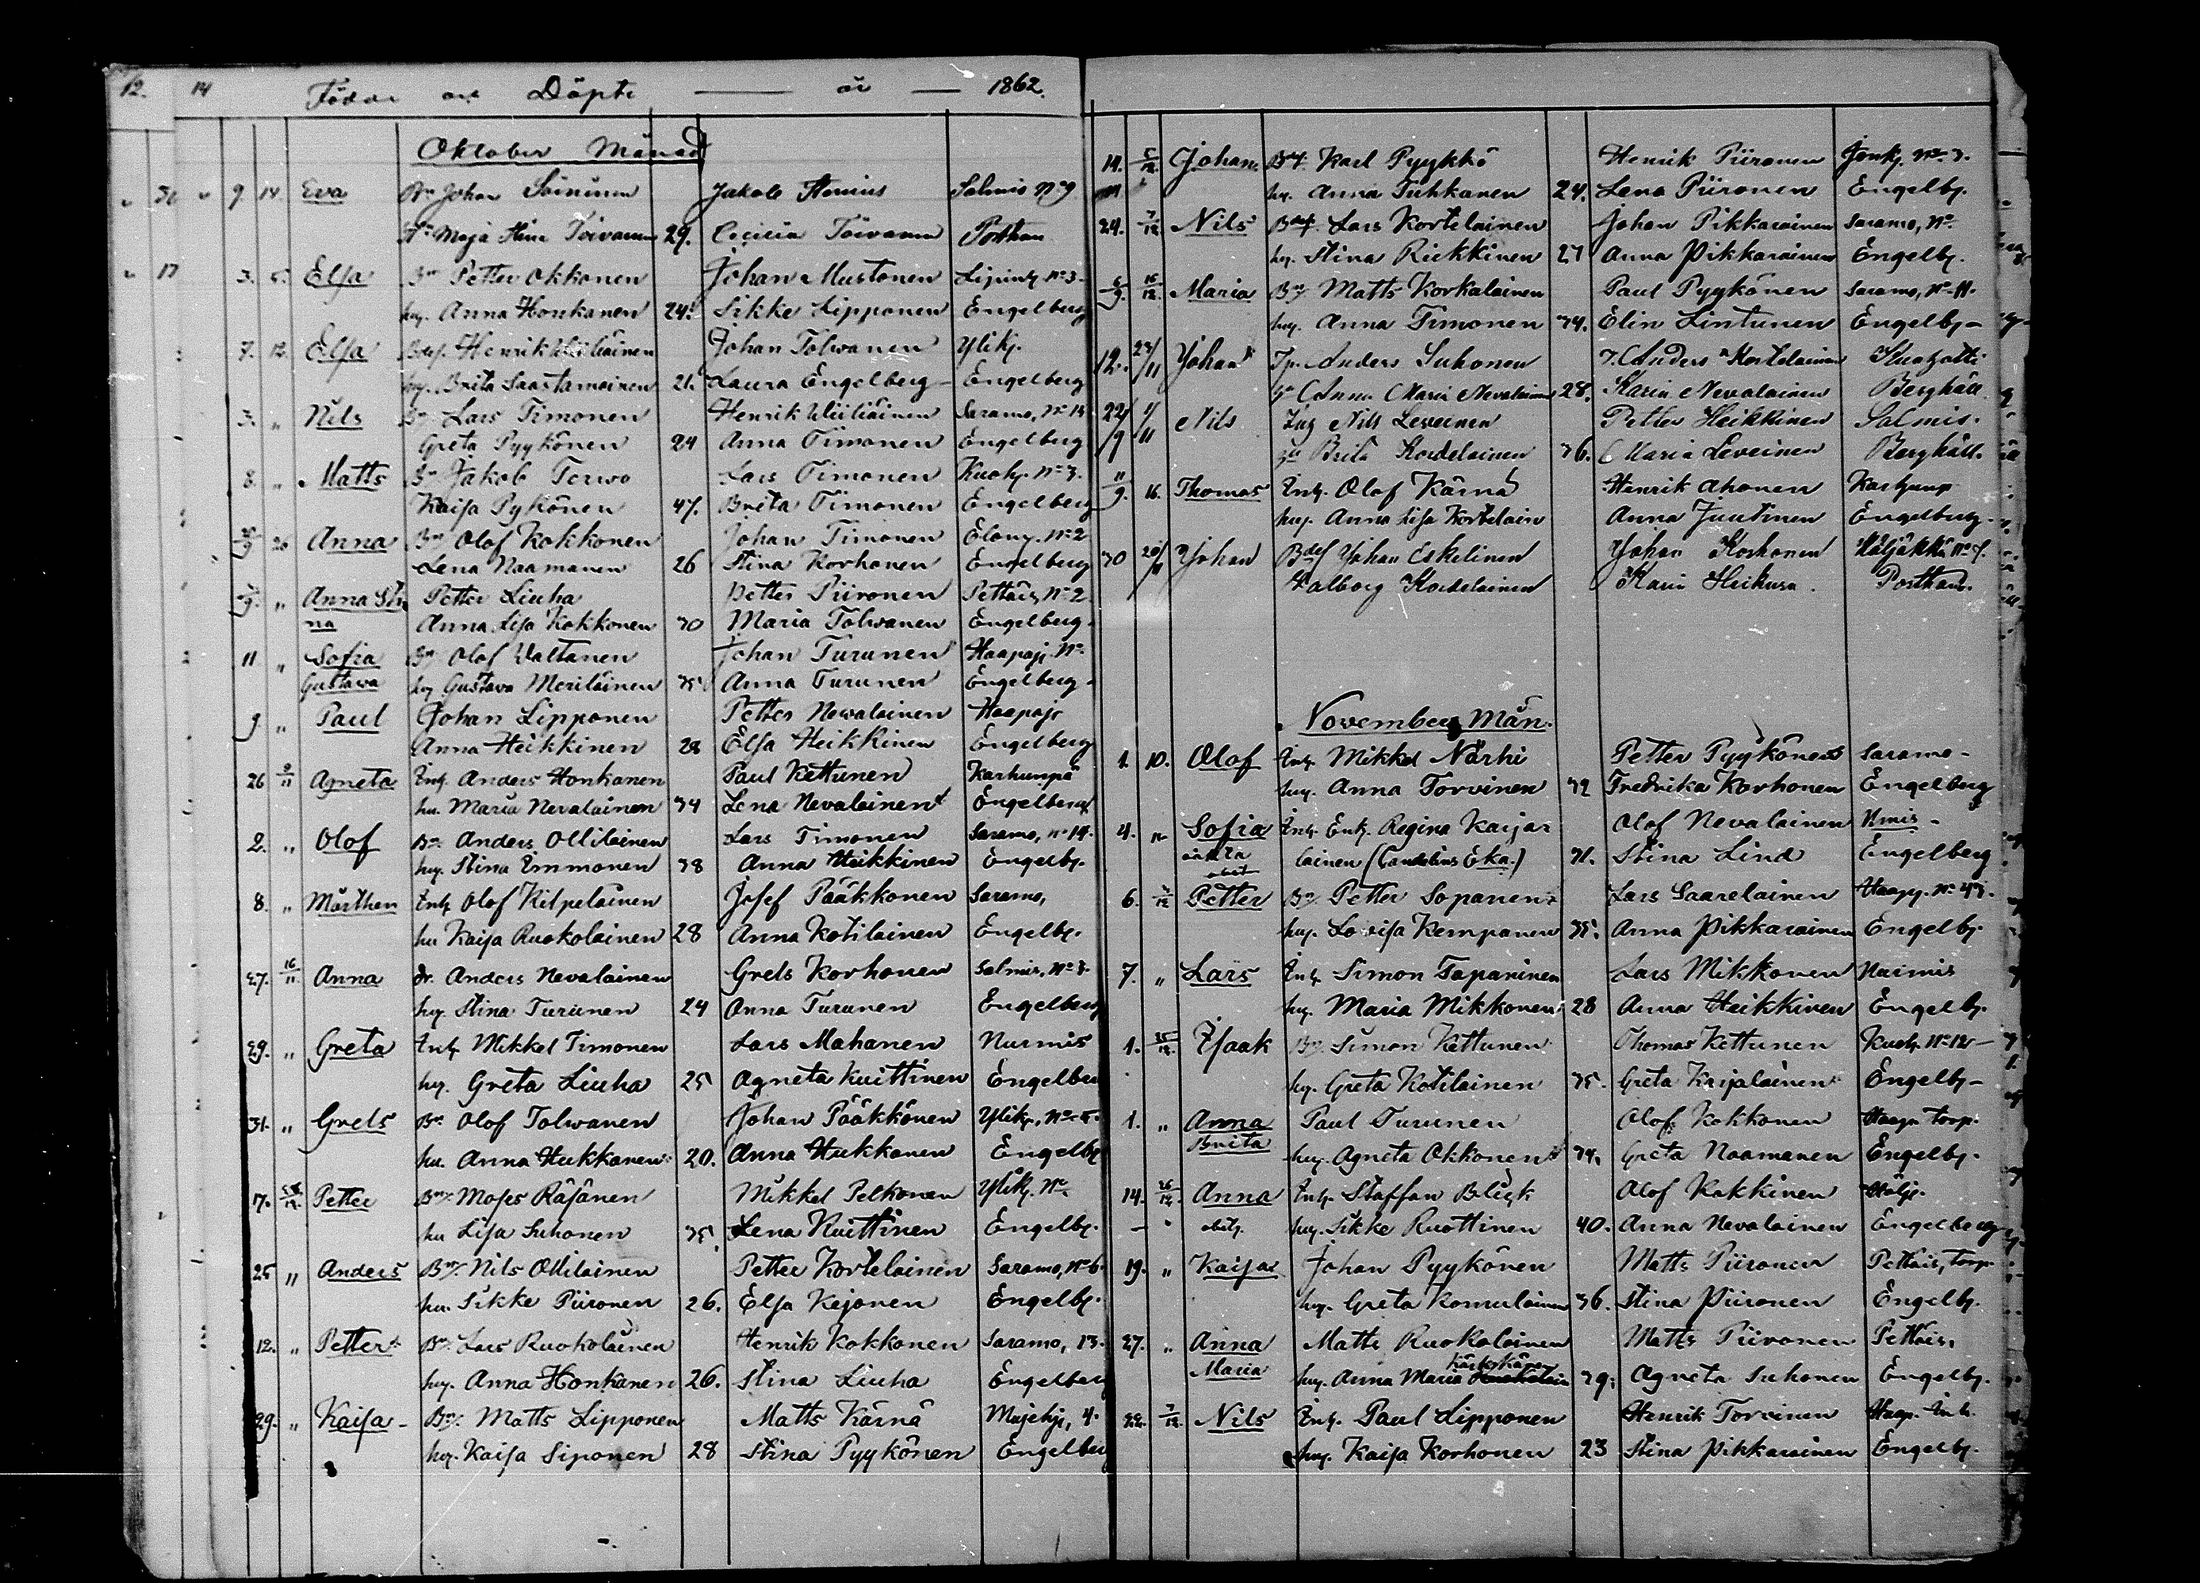 12. 14 Födde och Döpte — år — 1862.
Oktober Månad
9. 14. Eva Bn Johan Jakob Stenius Salmis No 9
Maja Stina Toivanen 29. Cecilia Toivanen Posthan
17 3. 5. Elsa Bn Petter Okkonen Johan Mustonen No 3.
hu. Anna Honkanen 24. Sikke Lipponen Engelberg
7. 12. Elsa Bdsf. Henrik Wiiliäinen Johan Tolwanen Ylikj.
hu. Brita Saastamoinen 21. Laura Engelberg Engelberg
3. " Nils Bn Lars Timonen Henrik Wiiliäinen Saramo, No 14
Greta Pyykönen 24 Anna Timonen Engelberg
8. " Matts Bn Jakob Terwo Lars Timonen Kuokj. No 3.
Kaisa Pykönen 41. Brita Timonen Engelberg
20 Anna Bn Olof Kokkonen Johan Timonen No 2
Lena Naamanen 26 Stina Korhonen Engelberg
" Anna Sti Petter Liuha Petter Piironen Pettäis, No 2.
na Anna Lisa Kokkonen 30 Maria Tolwanen Engelberg.
11 " Sofia Bn Olof Waltanen Johan Turunen Haapaj. No
Gustava hu Gustava Meriläinen 35 Anna Turunen Engelberg.
9 " Paul Johan Lipponen Petter Nevalainen Haapaj.
Anna Heikkinen 28 Elsa Heikkinen Engelberg
26 9/11 Agneta Inh. Anders Honkanen Paul Kettunen Karhunpä
hu. Maria Nevalainen 34 Lena Nevalainen Engelberg
2. " Olof Bn. Anders Ollilainen Lars Timonen Saramo, No 14.
hu. Stina Immonen 38 Anna Heikkinen Engelbj.
8. " Mårthen Inh. Olof Kilpeläinen Josef Pääkkonen Saramo,
hu Kaisa Ruokolainen 28 Anna Kotilainen Engelbj.
27. 16/11 Anna dr. Anders Nevalainen Grels Korhonen Salmis, No 8.
hu. Stina Turunen 24 Anna Turunen Engelberg
29. " Greta Inh. Mikkel Timonen Lars Mahanen Nurmis
hu. Greta Liuha 25 Agneta Kuittinen Engelber
31. " Grels Bn. Olof Tolwanen Johan Pääkkönen Ylikj., No 5.
hu. Anna Hukkanen 20. Anna Hukkanen Engelbj
17. Petter Bn. Moses Räsänen Mikkel Pelkonen Ylikj. No
hu Lisa Suhonen 35. Lena Kuittinen Engelbj.
25 " Anders Bn. Nils Ollilainen Petter Kortelainen Saramo, No 6.
hu. Sikke Piironen 26. Elsa Kejonen Engelbj.
12. " Petter Bn. Lars Ruokolainen Henrik Kokkonen Saramo, 13.
hu. Anna Honkanen 26. Stina Liuha Engelberg
29. " Kaisa Bn. Matts Lipponen Matts Kärnä Majekj., 4.
hu. Kaisa Siponen 28 Stina Pyykönen Engelber
14. 5/12 Johan Bn. Karl Pyykkö Henrik Piironen Jonkj. No 3.
hu. Anna Tuhkanen 24. Lena Piironen Engelbj.
24. 7/12 Nils Bdsf. Lars Kortelainen Johan Pikkarainen Saramo, No
hu. Stina Riekkinen 27 Anna Pikkarainen Engelbj.
6/9. 16/12. Maria Bn. Matts Korkalainen Paul Pyykönen Saramo, No 11.
hu. Anna Timonen 34. Elin Lintunen Engelbj
12. 23/11 Johan Tp. Anders Suhonen Anders Kortelainen
Anna Maria Nevalainen 28. Karin Nevalainen Berghäll
22/9 1/11 Nils Inh Nils Leveinen Petter Heikkinen Salmis.
Brita Kortelainen 36. Maria Leveinen Berghäll.
11/9. 16. Thomas Inh. Olof Kärnä Henrik Ahonen Karhunp
hu. Anna Lisa Kortelain Anna Juutinen Engelberg
30 20/11 Johan Bdsf Johan Eskelinen Johan Korhonen
Walborg Kortelainen Karin Posthan.
November Mån.
1. 10. Olof Inh. Mikkel Närhi Petter Pyykönen Saramo
hu. Anna Torvinen 32 Fredrika Korhonen Engelberg
4. Sofia Inh. Enk. Regina Karja Olof Nevalainen Nmis
oäkta lainen (Candelins Eka.) 31. Stina Lind Engelberg
obit
6. Petter Bn. Petter Sopanen Lars Saarelainen Haapj. No 43.
hu. Lovisa Kempanen 35. Anna Pikkarainen Engelbj.
7. " Lars Inh. Simon Tapaninen Lars Mikkonen Nurmis
hu. Maria Mikkonen 28 Anna Heikkinen Engelbj.
1. Isaak Bn. Simon Kettunen Thomas Kettunen Kuokj. No 12
hu. Greta Kotilainen 35. Greta Karjalainen Engelbj
1. " Anna Paul Turunen Olof Kokkonen Haapa torp.
Brita hu. Agneta Okkonen 34. Greta Naamanen Engelbj.
14. 26/12. Anna Inh. Staffan Blick Olof Kakkinen Höljj.
obit. hu. Sikke Ruottinen 40. Anna Nevalainen Engelberg
19. " Kaisa Johan Pyykönen Matts Piironen Pettäis, torp.
hu. Greta Komulainen 36. Stina Piironen Engelbj.
27. " Anna Matts Ruokolainen Matts Piironen Pettäis,
Maria hu. Anna Maria 39. Agneta Suhonen Engelbj.
22. 7/12. Nils Inh. Paul Lipponen Henrik Torvinen Haap. Inh.
hu. Kaisa Korhonen 23 Stina Pikkarainen Engelbj.